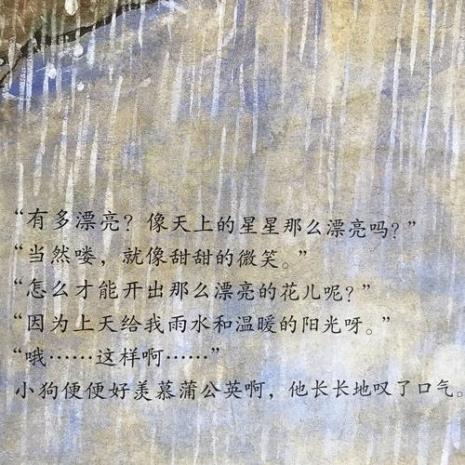 “有多漂亮？像天上的星星那么漂亮吗？”
“当然喽，就像甜甜的微笑。”
“怎么才能开出那么漂亮的花儿呢？”
“因为上天给我雨水和温暖的阳光呀。”
“哦……这样啊……”
小狗便便好羡慕蒲公英啊，他长长地叹了口气。